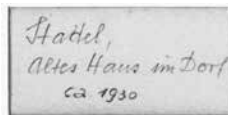 Stattel,
Altes Haus im Dorf
ca 1930